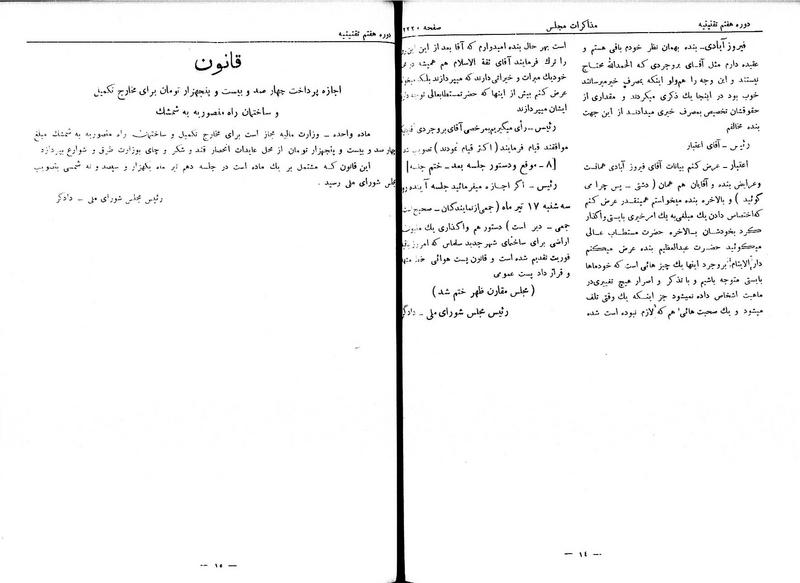 دوره هفتم تقنینیه
مذاکرات مجلس
صفحه ۲۲۲۰
فیروز آبادی ـ بنده بهمان نظر خودم باقی هستم و
عقیده دارم مثل آقای بروجردی که الحمدالله محتاج
نیستند و این وجه را هم ولو اینکه بمصرف خیر میرسانند
خوب بود در اینجا یك ذکری میکردند و مقداری از
حقوقشان تخصیص بمصرف خیری میدادند از این جهت
بنده مخالفم
رئیس ـ آقای اعتبار
اعتبار ـ عرض کنم بیانات آقای فیروز آبادی همانست
وعرایض بنده و آقایان هم همان ( دشتی ـ پس چرا می
گوئید ) و بالاخره بنده میخواستم همینقدر عرض کنم
که اختصاص دادن یك مبلغی به یك امر خیری بایستی واگذار
کرد بخودشان بالاخره حضرت مستطاب عالی
میگوئید حضرت عبدالعظیم بنده عرض میکنم
دارالایتام بروجرد اینها یك چیز هائی است که خود ماها
بایستی متوجه باشیم و با تذکر و اصرار هیچ تغییری در
ماهیت اشخاص داده نمیشود جز اینکه یك وقتی تلف
میشود و یك صحبت هائی هم که لازم نبوده است شده
است بهر حال بنده امیدوارم که آقا بعد از این این
را ترك فرمایند آقای ثقة الاسلام هم همیشه در
خود یك مبرات و خیراتی دارند که میپردازند بلکه
عرض کنم بیش از اینها که حضرت مستطابعالی توجه
ایشان میپردازند
رئیس ـ رأی میگیریم بمرخصی آقای بروجردی
موافقند قیام فرمایند ( اکثر قیام نمودند ) تصویب شد
[ ۸ ـ موقع و دستور جلسه بعد ـ ختم جلسه ]
رئیس ـ اگر اجازه میفرمائید جلسه آینده
سه شنبه ۱۷ تیر ماه ( جمعی از نمایندگان ـ صحیح است
جمعی ـ دیر است ) دستور هم واگذاری یك
اراضی برای ساختمان شهر جدید سلماس که امروز
فوریت تقدیم شده است و قانون پست هوائی
و قرار داد پست عمومی
( مجلس مقارن ظهر ختم شد )
رئیس مجلس شورای ملی ـ دادگر
— ١٤ —
دوره هفتم تقنینیه
قانون
اجازه پرداخت چهار صد و بیست و پنجهزار تومان برای مخارج تکمیل
و ساختمان راه مفصوربه به شمشك
ماده واحده ـ وزارت مالیه مجاز است برای مخارج تکمیل و ساختمان راه مفصوربه به شمشك مبلغ
چهار صد و بیست و پنجهزار تومان از محل عایدات انحصار قند و شکر و چای بوزارت طرق و شوارع بپردازد
این قانون که مشتمل بر یك ماده است در جلسه دهم تیر ماه یکهزار و سیصد و نه شمسی بتصویب
مجلس شورای ملی رسید .
رئیس مجلس شورای ملی ـ دادگر
— ۱٥ —